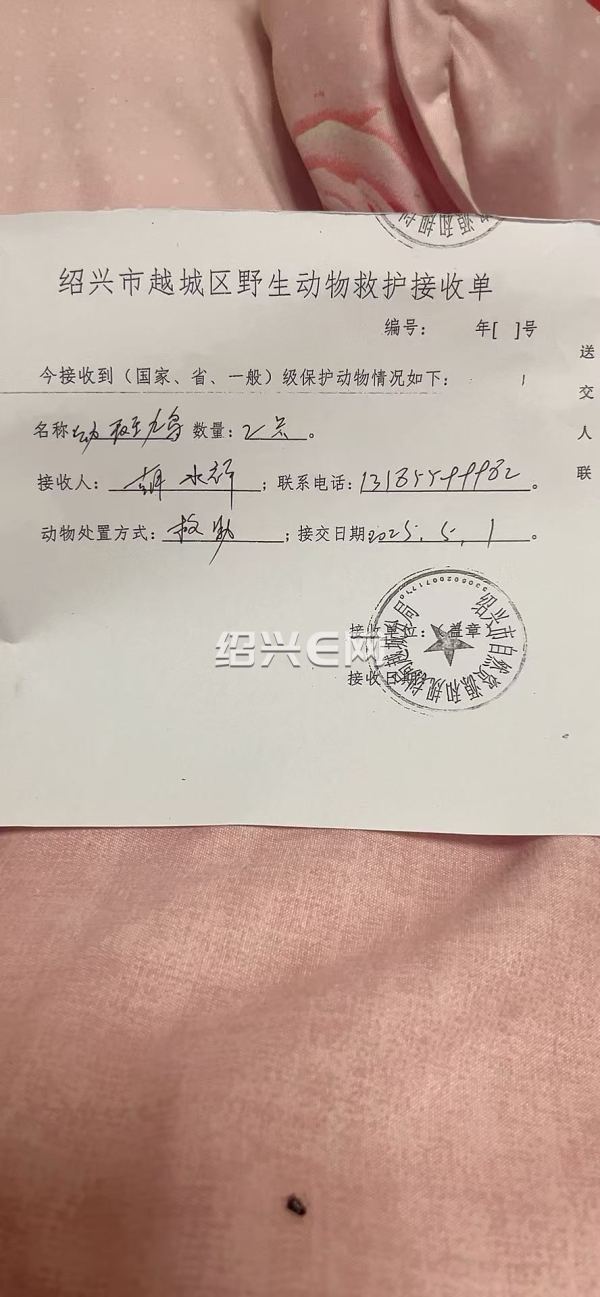 绍兴市越城区野生动物救护接收单
编号： 年[ ]号
今接收到（国家、省、一般）级保护动物情况如下：
名称 数量：2只。
接收人： 水 ；联系电话：
动物处置方式：救助；接交日期2025.5.1。
接收单位：（盖章）
接收日期
送交人联
绍兴市自然资源和规划局越城分局
源和规划
绍兴E网